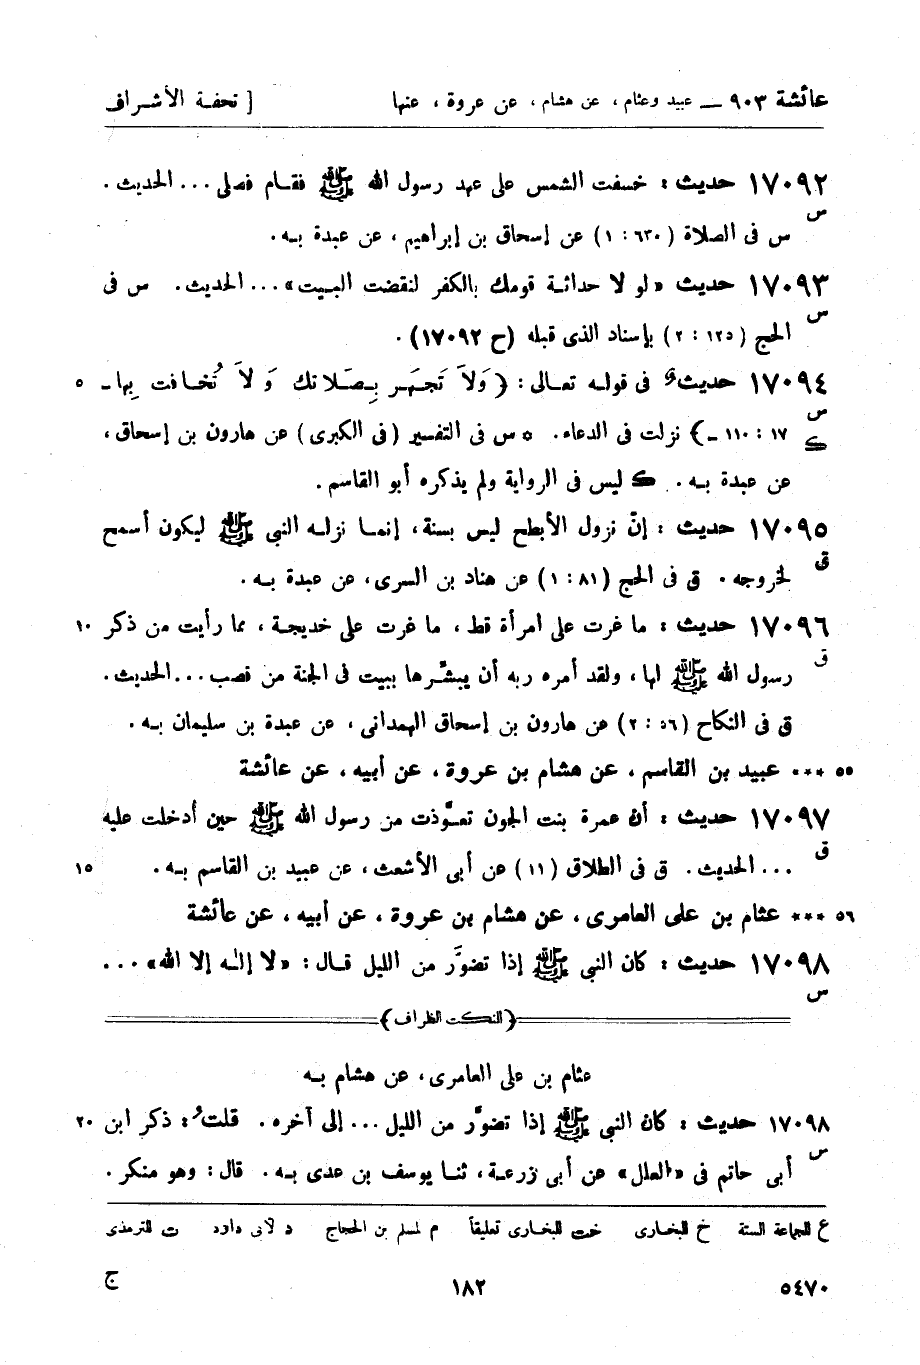 عائشة ٩٠٣ — عبيد وعثام، عن هشام، عن عروة، عنها [ تحفة الأشراف
١٧٠٩٢ حديث : خسفت الشمس على عهد رسول الله ﷺ فقام فصلى ... الحديث .
س
س فى الصلاة ( ٦٣٠ : ١ ) عن إسحاق بن إبراهيم ، عن عبدة بـه .
١٧٠٩٣ حديث «لو لا حداثة قومك بالكفر لنقضت البيت» ... الحديث . س فى
س
الحج ( ١٢٥ : ٢ ) بإسناد الذى قبله (ح ١٧٠٩٢) .
١٧٠٩٤ حديث فى قوله تعالى : ﴿ وَلاَ تَجهَـر بِـصَلاتك وَ لاَ تُخافت بِها ـ ٥
س
ك
١٧ : ١١٠ ـ ﴾ نزلت فى الدعاء . ٥ س فى التفسير ( فى الكبرى ) عن هارون بن إسحاق ،
عن عبدة بـه . ك ليس فى الرواية ولم يذكره أبو القاسم .
١٧٠٩٥ حديث : إنّ نزول الأبطح ليس بسنة ، إنما نزله النبي ﷺ ليكون أسمح
ق
لخروجه . ق فى الحج ( ٨١ : ١ ) عن هناد بن السرى ، عن عبدة بـه .
١٧٠٩٦ حديث : ما غرت على امرأة قط ، ما غرت على خديجة ، مما رأيت من ذكر ١٠
ق
رسول الله ﷺ لها ، ولقد أمره ربه أن يبشّرها ببيت فى الجنة من قصب ... الحديث .
ق فى النكاح ( ٥٦ : ٢ ) عن هارون بن إسحاق الهمدانى ، عن عبدة بن سليمان بـه .
٥٥ *** عبيد بن القاسم ، عن هشام بن عروة ، عن أبيه ، عن عائشة
١٧٠٩٧ حديث : أن عمرة بنت الجون تعوّذت من رسول الله ﷺ حين أدخلت عليه
ق
... الحديث . ق فى الطلاق ( ١١ ) عن أبى الأشعث ، عن عبيد بن القاسم بـه . ١٥
٥٦ *** عثام بن على العامرى ، عن هشام بن عروة ، عن أبيه ، عن عائشة
١٧٠٩٨ حديث : كان النبي ﷺ إذا تضوَّر من الليل قـال : «لا إلـه إلا الله» ...
س
﴿ النكت الظراف ﴾
عثام بن على العامرى ، عن هشام بـه
١٧٠٩٨ حديث : كان النبي ﷺ إذا تضوّر من الليل ... إلى آخره . قلت : ذكر ابن ٢٠
س
أبى حاتم فى «العلل» عن أبى زرعـة ، ثنـا يوسف بن عدى بـه . قال : وهو منكر .
ع للجماعة الستة خ للبخارى خت للبخارى تعليقاً م لمسلم بن الحجاج د لأبى داود ت للترمذى
٥٤٧٠ ١٨٢ ج